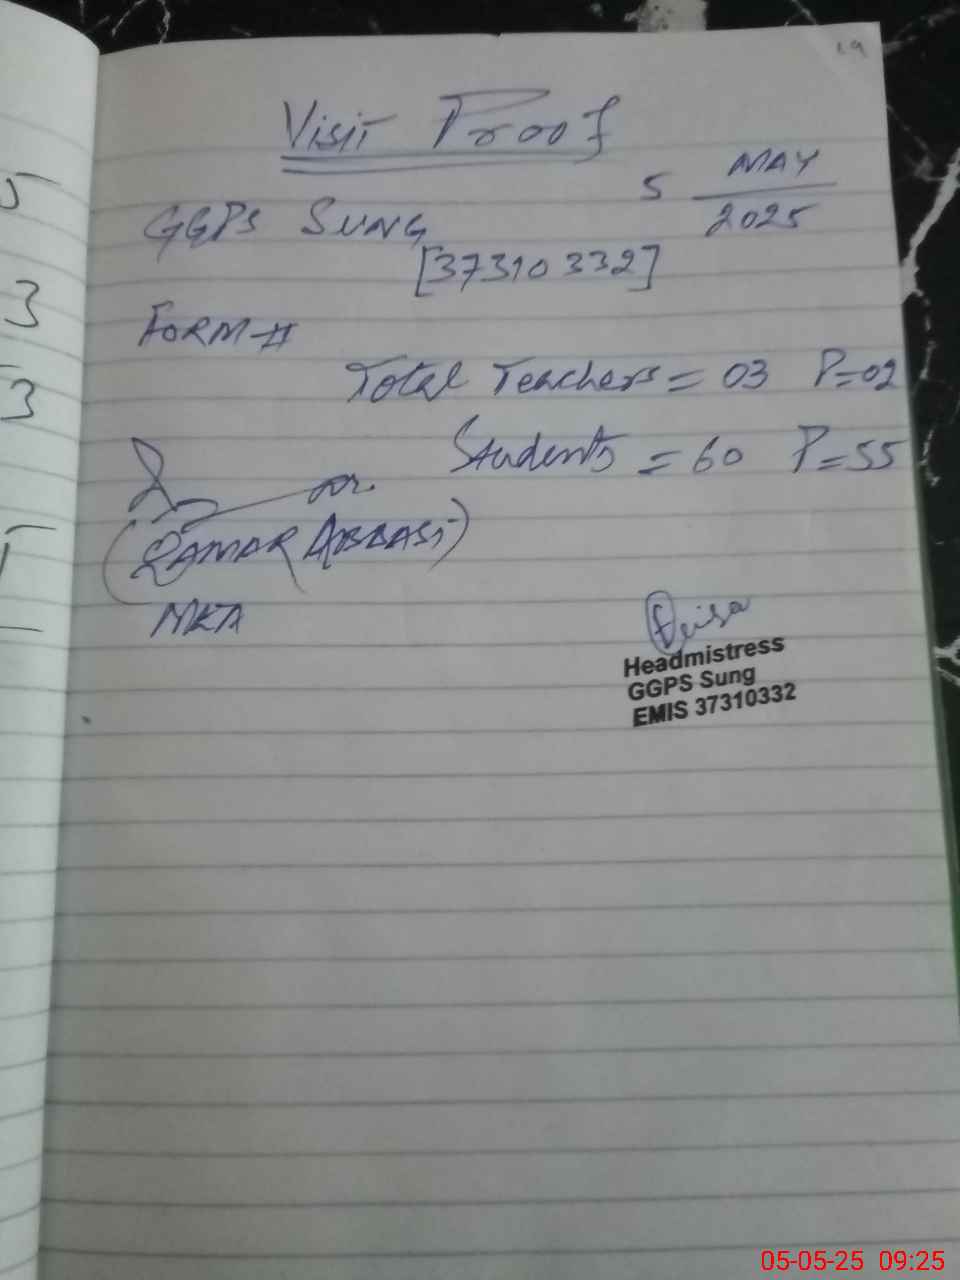 19
Visit Proof
5 MAY
2025
GGPS SUNG
[37310332]
FORM-II
Total Teachers = 03 P=02
Students = 60 P=55
(QAMAR ABBASI)
MEA
Headmistress
GGPS Sung
EMIS 37310332
5
3
3
05-05-25 09:25